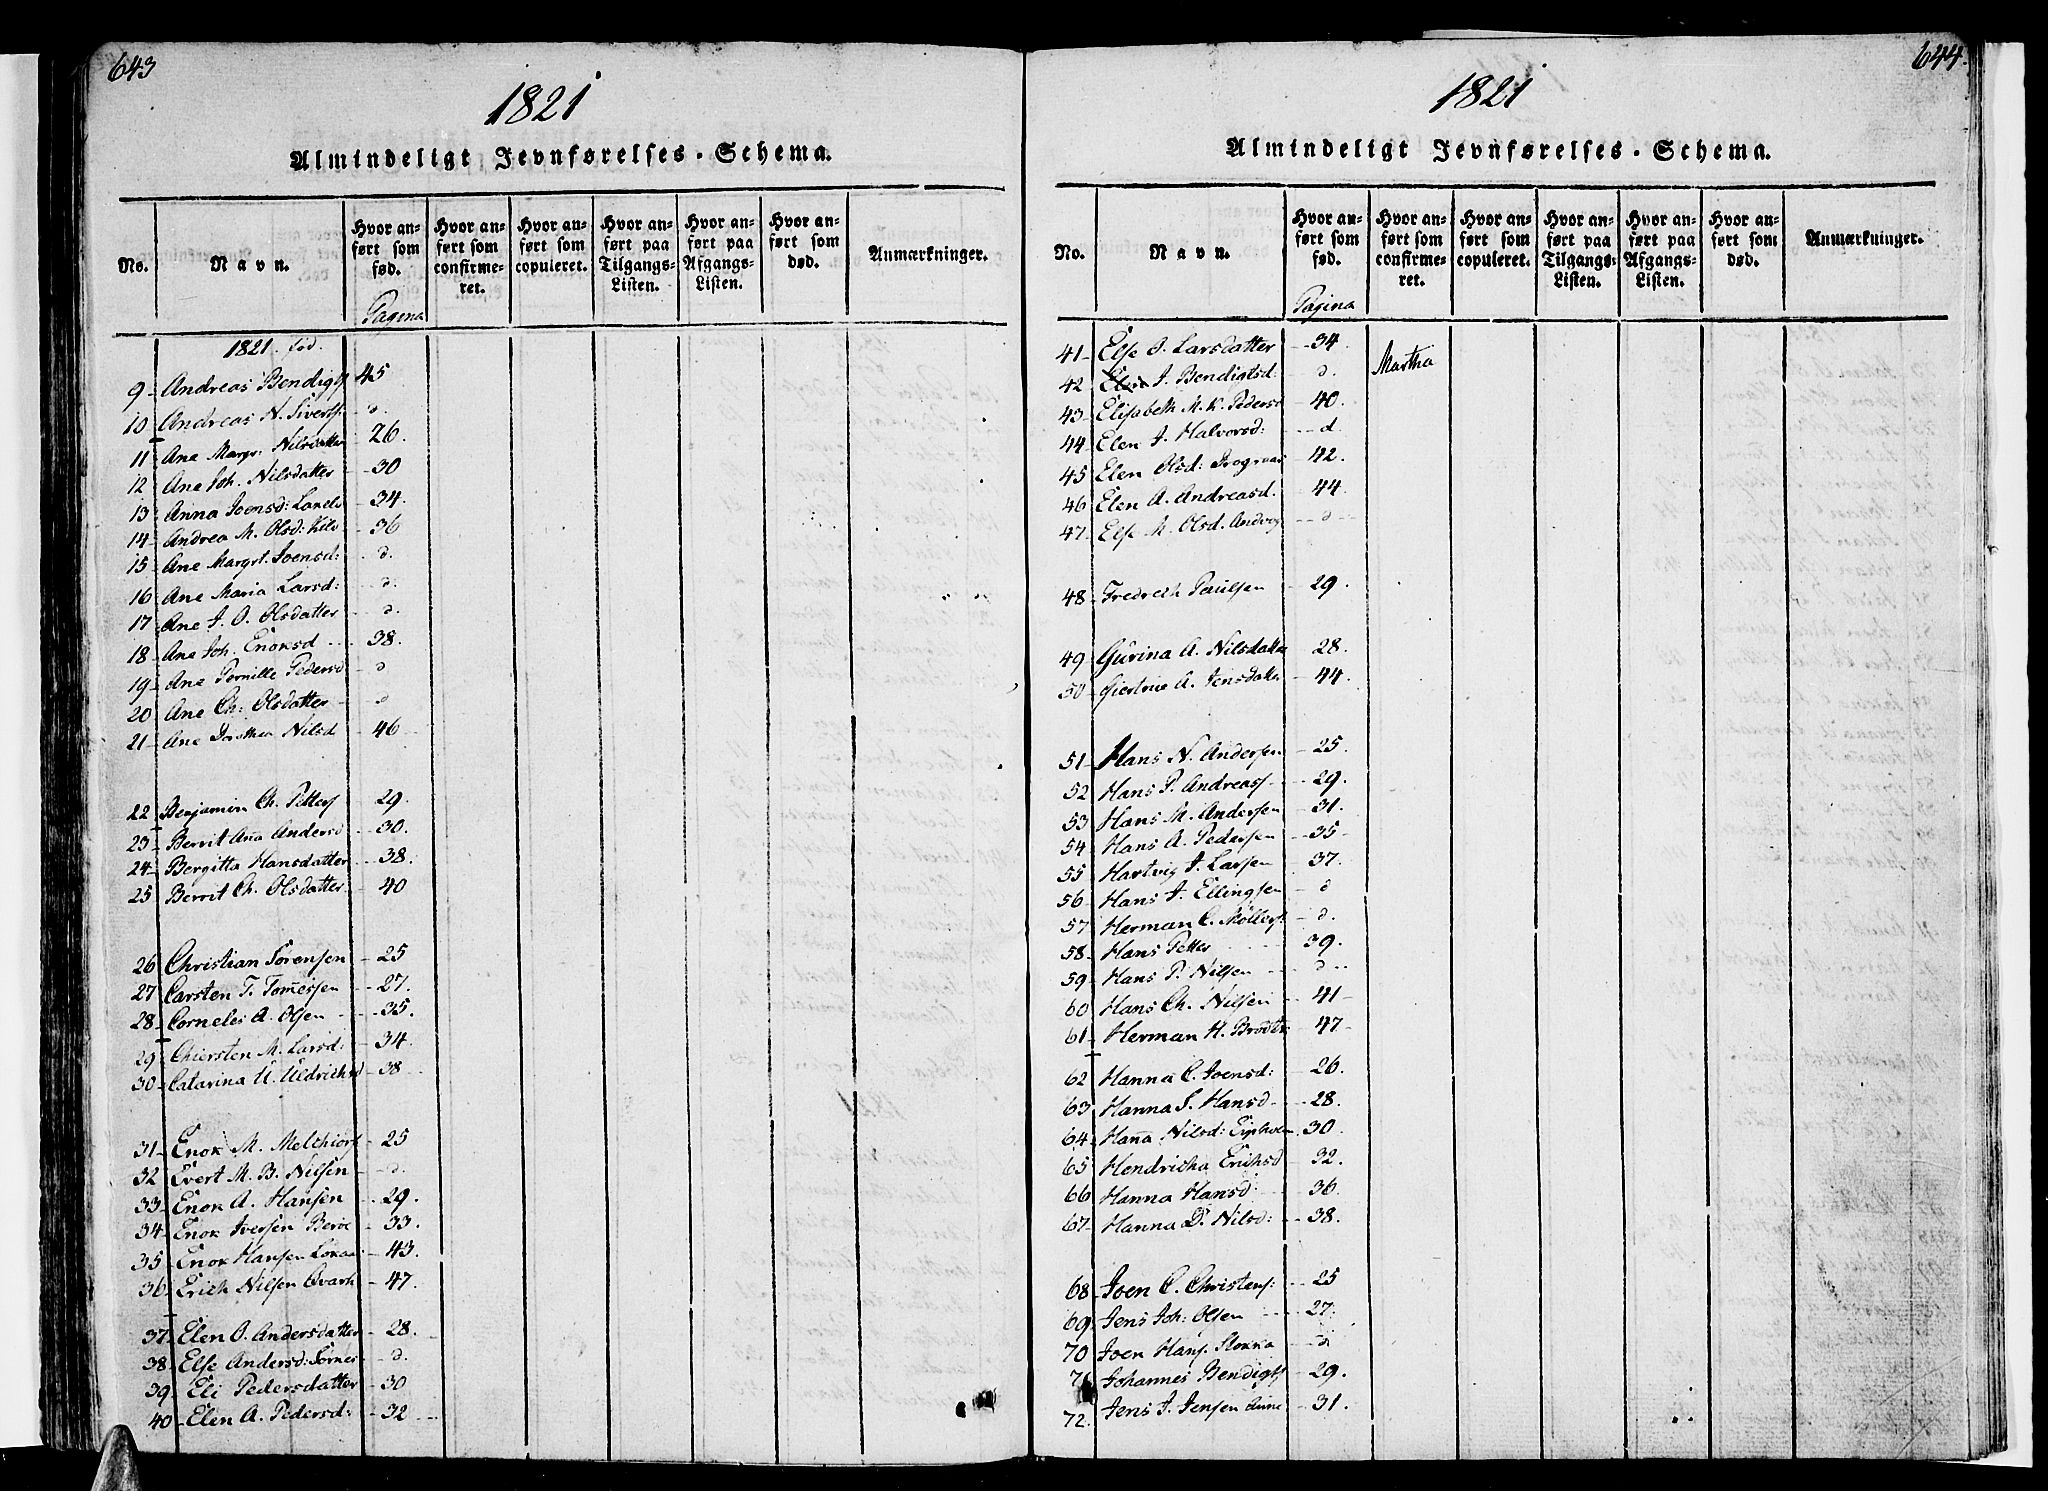 643
1821
Almindeligt Jevnførelses-Schema.
No.
Navn.
Hvor anført som fød.
Hvor anført som confirmeret.
Hvor anført som copuleret.
Hvor anført paa Tilgangs-Listen.
Hvor anført paa Afgangs-Listen.
Hvor anført som død.
Anmærkninger.
Pagina
1821. fød.
9 Andreas Bendigts 45
10 Andreas N. Siverts. d.
11 Ane Margr: Nilsdatter 26.
12 Ane Joh. Nilsdatter 30
13 Anna Joensd: 34.
14 Andrea M. Olsd: 36
15 Ane Margrt. Joensd: d.
16 Ane Maria Larsd: d.
17 Ane J. O. Olsdatter d.
18 Ane Joh. Enoksd 38.
19 Ane Pernille Pedersd d
20 Ane Ch: Olsdatter d
21 Ane Dorthea Nilsd 46
22 Benjamin Ch. Petters 29.
23 Berrit Ana Andersd 30.
24 Bergitta Hansdatter 38.
25 Berrit Ch. Olsdatter 40
26 Christian Sørensen 25
27 Carsten T. Tomessen 27.
28 Corneles A. Olsen 35.
29 Chiersten M. Larsd: 34.
30 Catarina U. Uldrichsd 38
31 Enok M. Melchiors 25
32 Evert M. B. Nilsen d.
33 Enok A. Hansen 29.
34 Enok Iversen 33.
35 Enok Hansen 43.
36 Erich Nilsen 47.
37 Elen O. Andersdatter 28.
38 Else Andersd: d.
39 Eli Pedersdatter 30
40 Elen A. Pedersd: 32
644.
1821
Almindeligt Jevnførelses-Schema.
No.
Navn.
Hvor anført som fød.
Hvor anført som confirmeret.
Hvor anført som copuleret.
Hvor anført paa Tilgangs-Listen.
Hvor anført paa Afgangs-Listen.
Hvor anført som død.
Anmærkninger.
Pagina
41 Else J. Larsdatter 34.
42 Elen J. Bendigtsd: d. Martha
43 Elisabeth M. K. Pedersd 40.
44 Elen J. Halvorsd: d
45 Elen Olsd: 42.
46 Elen A. Andreasd. 44.
47 Else M. Olsd. d
48 Fredrech Paulsen 29.
49 Gurina A. Nilsdatter 28.
50 Giertrue A. Jensdatter 44.
51 Hans N. Andersen 25.
52 Hans P. Andreass 29.
53 Hans M. Andersen 31.
54 Hans A. Pedersen 35
55 Hartvig J. Larsen 37.
56 Hans J. Ellingsen d
57 Herman C. Møllers d.
58 Hans Petter 39.
59 Hans P. Nilsen d
60 Hans Ch. Nilsen 41
61 Herman H. 47
62 Hanna C. Joensd: 26.
63 Hanna S. Hansd 28.
64 Hana Nilsd: 30.
65 Hendricha Erichsd 32.
66 Hanna Hansd 36.
67 Hanna D. Nilsd: 38.
68 Joen C. Christens: 25
69 Jens Joh: Olsen 27.
70 Joen Hans. d
71 Johannes Bendigts 29.
72. Jens J. Jensen 31.